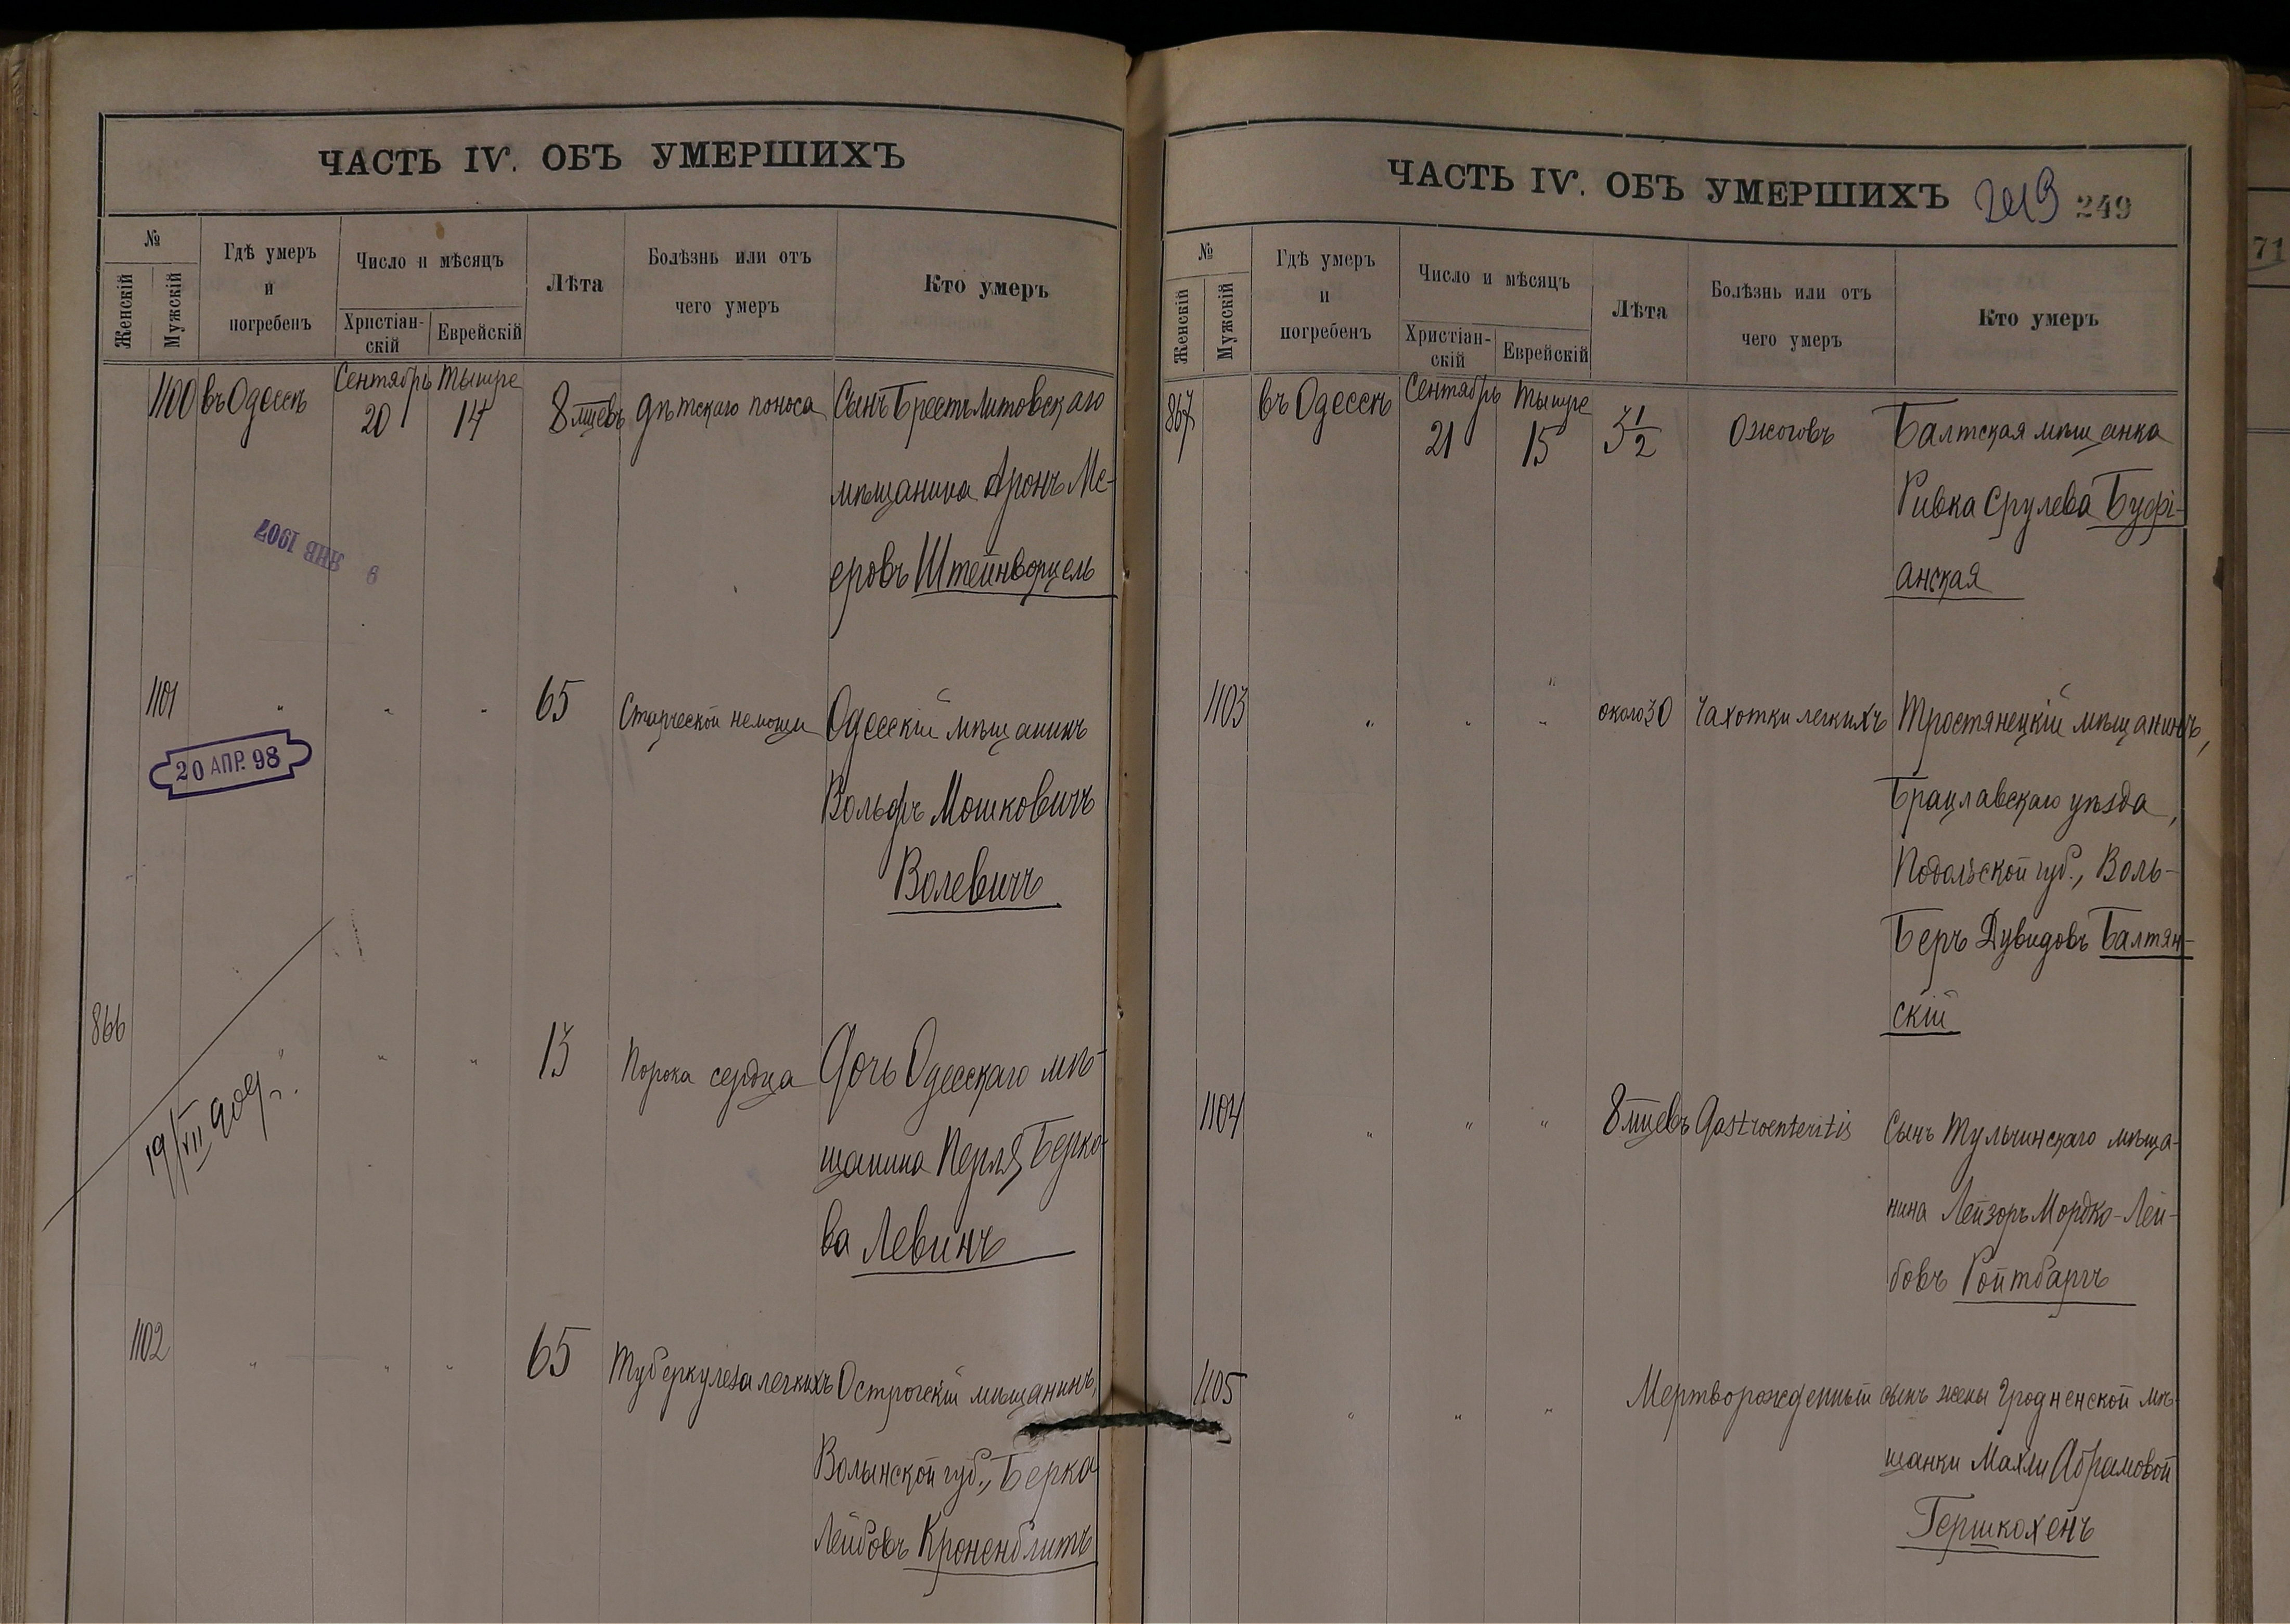 ЧАСТЬ IV. ОБЪ УМЕРШИХЪ
№
Женскій
Мужскій
Гдѣ умеръ
и
погребенъ
Число и мѣсяцъ
Христіан-
скій
Еврейскій
Лѣта
Болѣзнь или отъ
чего умеръ
Кто умеръ
1100 въ Одессѣ Сентябрь 20 Тышре 14 8 мцевъ дѣтскаго поноса Сынъ Брестълитовскаго
мѣщанина Аронъ Ме-
еровъ Штейнворцель
9 ЯНВ 1907
1101 " " " 65 Старческой немощи Одесскій мѣщанинъ
Вольфъ Мошковичъ
Волевичъ
20 АПР. 98
866 " " " 13 Порока сердца Дочь Одесскаго мѣ-
щанина Перля Берко-
ва Левинъ
19/VII 909 г.
1102 " " " 65 Туберкулеза легкихъ Острогскій мѣщанинъ,
Волынской губ., Берко
Лейбовъ Кроненблитъ
ЧАСТЬ IV. ОБЪ УМЕРШИХЪ 249 249
№
Женскій
Мужскій
Гдѣ умеръ
и
погребенъ
Число и мѣсяцъ
Христіан-
скій
Еврейскій
Лѣта
Болѣзнь или отъ
чего умеръ
Кто умеръ
867 въ Одессѣ Сентябрь 21 Тышре 15 3 1/2 Ожоговъ Балтская мѣщанка
Ривка Срулева Буфі-
анская
1103 " " " около 30 Чахотки легкихъ Тростянецкій мѣщанинъ,
Брацлавскаго уѣзда,
Подольской губ., Воль-
Беръ Дувидовъ Балтян-
скій
1104 " " " 8 мцевъ Gastroenteritis Сынъ Тульчинскаго мѣща-
нина Лейзоръ Мордко-Лей-
бовъ Ройтбаргъ
1105 " " " Мертворожденный сынъ жены Гродненской мѣ-
щанки Махли Абрамовой
Гершкохенъ
71